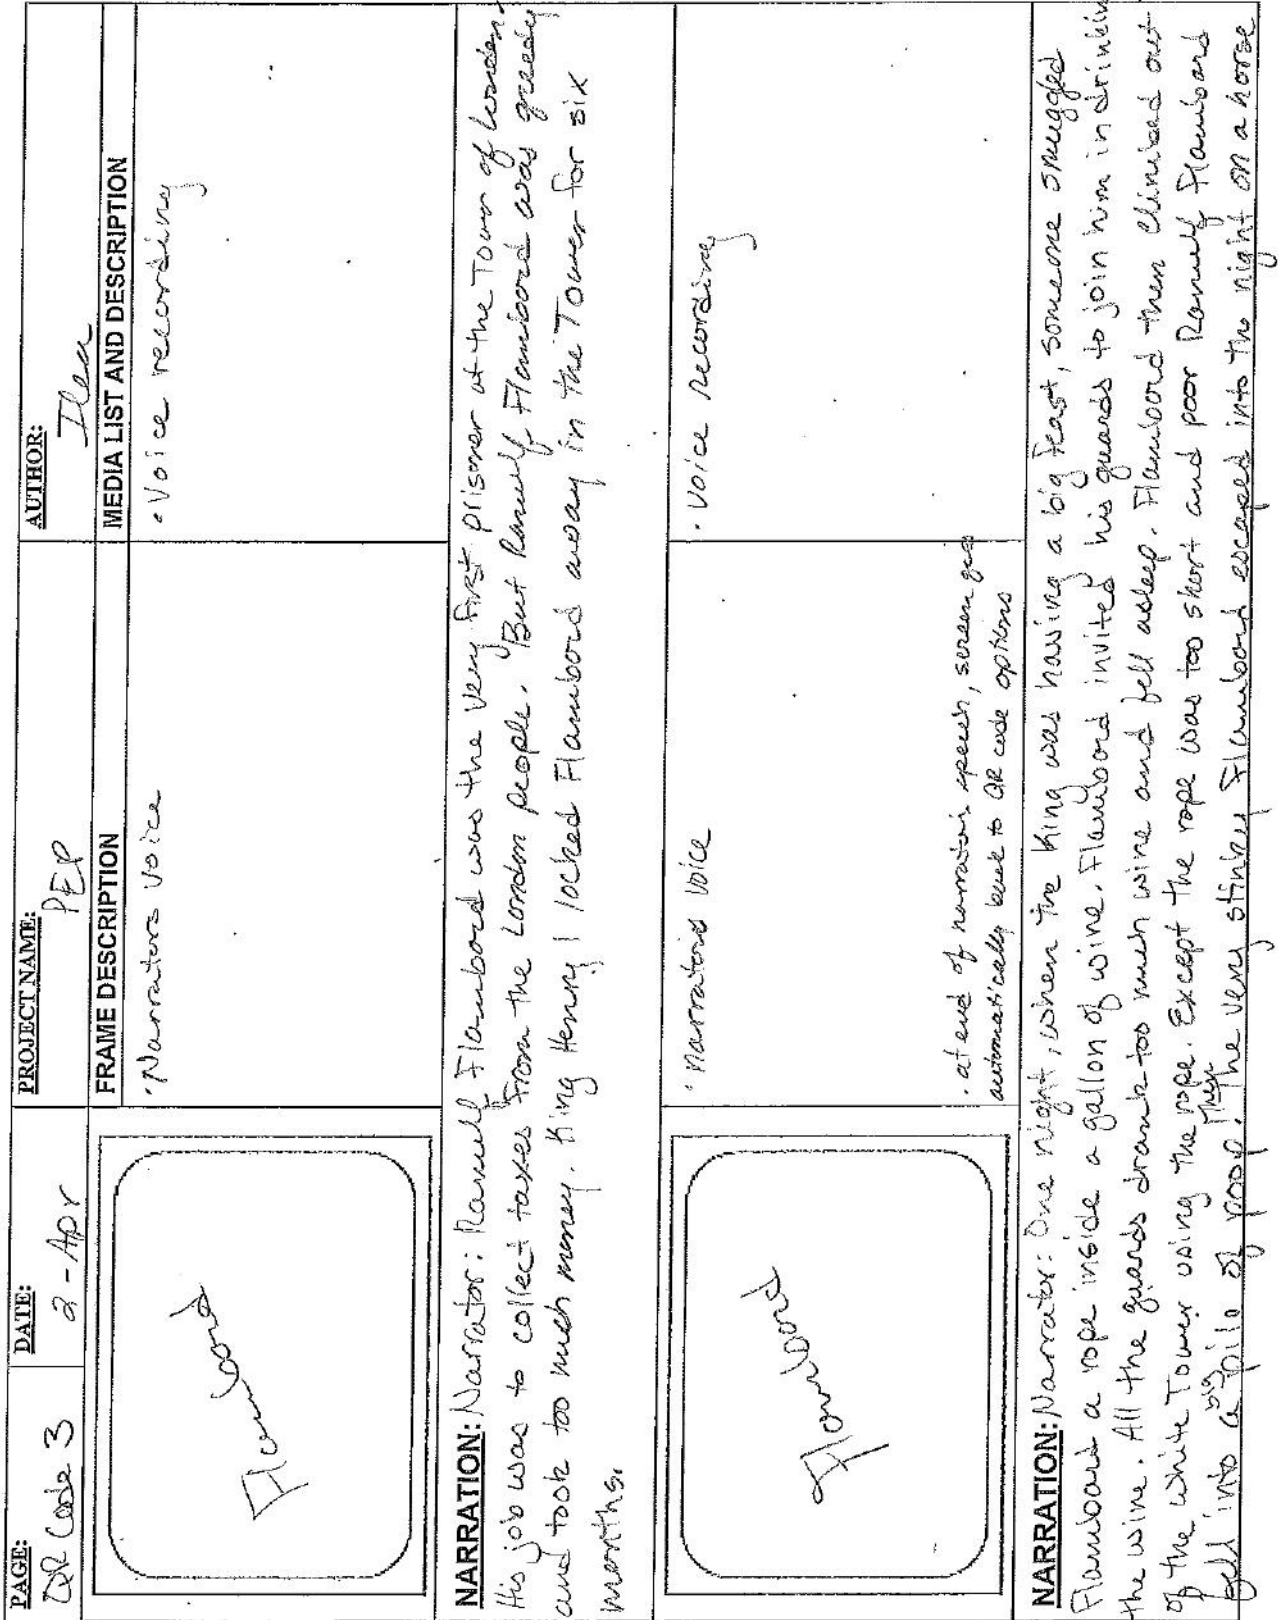 PAGE: QR Code 3
DATE: 2-Apr
PROJECT NAME: PEP
AUTHOR: Ilea
FRAME DESCRIPTION
MEDIA LIST AND DESCRIPTION
Flambard
· Narrators Voice
· Voice recording
NARRATION: Narrator: Ranulf Flambard was the very first prisoner at the Tower of London.
His job was to collect taxes from the London people. But Ranulf Flambard was greedy
and took too much money. King Henry I locked Flambard away in the Tower for six
months.
Flambard
· Narrators Voice
· at end of narrators speech, screen goes
automatically back to QR code options
· Voice recording
NARRATION: Narrator: One night, when the King was having a big feast, someone smuggled
Flambard a rope inside a gallon of wine. Flambard invited his guards to join him in drinking
the wine. All the guards drank too much wine and fell asleep. Flambard then climbed out
of the White Tower using the rope. Except the rope was too short and poor Ranulf Flambard
fell into a big pile of poop! Then the very stinky Flambard escaped into the night on a horse